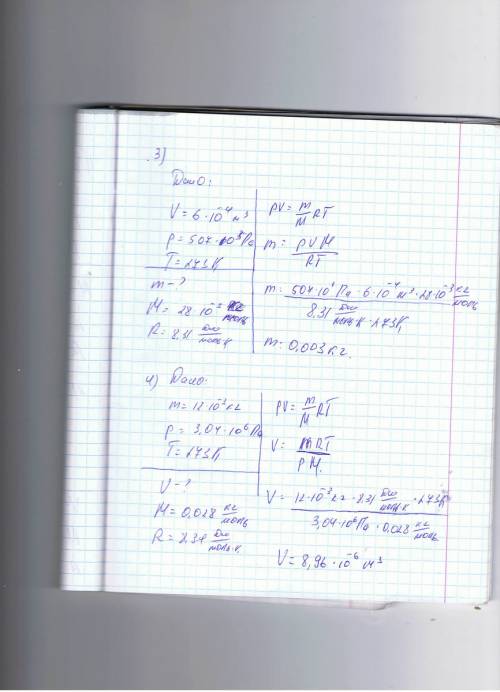 3)
Дано:
V = 6·10⁻⁴ м³
p = 507·10³ Па
T = 273 К
m - ?
M = 28·10⁻³ кг/моль
R = 8.31 Дж/моль·К
pV = m/M RT
m = pVM/RT
m = 507·10³ Па · 6·10⁻⁴ м³ · 28·10⁻³ кг/моль / 8.31 Дж/моль·К · 273 К
m = 0,003 кг.
4) Дано:
m = 12·10⁻³ кг
p = 3,04·10⁶ Па
T = 273 К
V - ?
M = 0,028 кг/моль
R = 8,31 Дж/моль·К
pV = m/M RT
V = mRT/pM.
V = 12·10⁻³ кг · 8.31 Дж/моль·К · 273 К / 3,04·10⁶ Па · 0.028 кг/моль
V = 8,96·10⁻⁶ м³